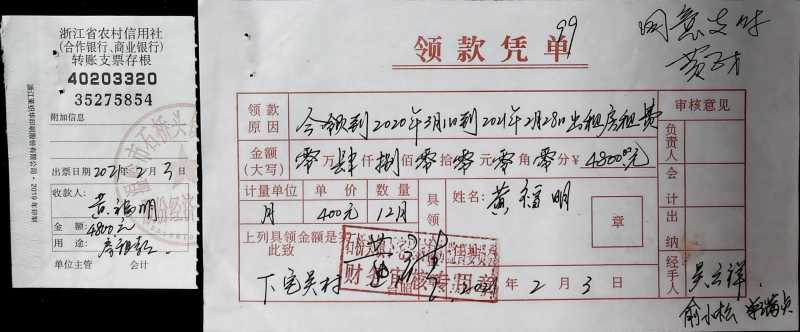 浙江省农村信用社
(合作银行、商业银行)
转账支票存根
40203320
35275854
附加信息
出票日期 2021年2月3日
收款人:
黄福明
金额:
4800元
用途: 房租款
单位主管 会计
99
领款凭单
同意支付
领款原因
今领到2020年3月1日到2021年2月28日出租房租费
审核意见
金额(大写) 零万肆仟捌佰零拾零元零角零分¥4800元
计量单位 单价 数量
月 400元 12月
具领
姓名: 黄福明
章
上列具领金额是实
此致
财务审核专用章
下宅吴村
2021年2月3日
负责人
会计
出纳
经手人
吴云祥
俞小松